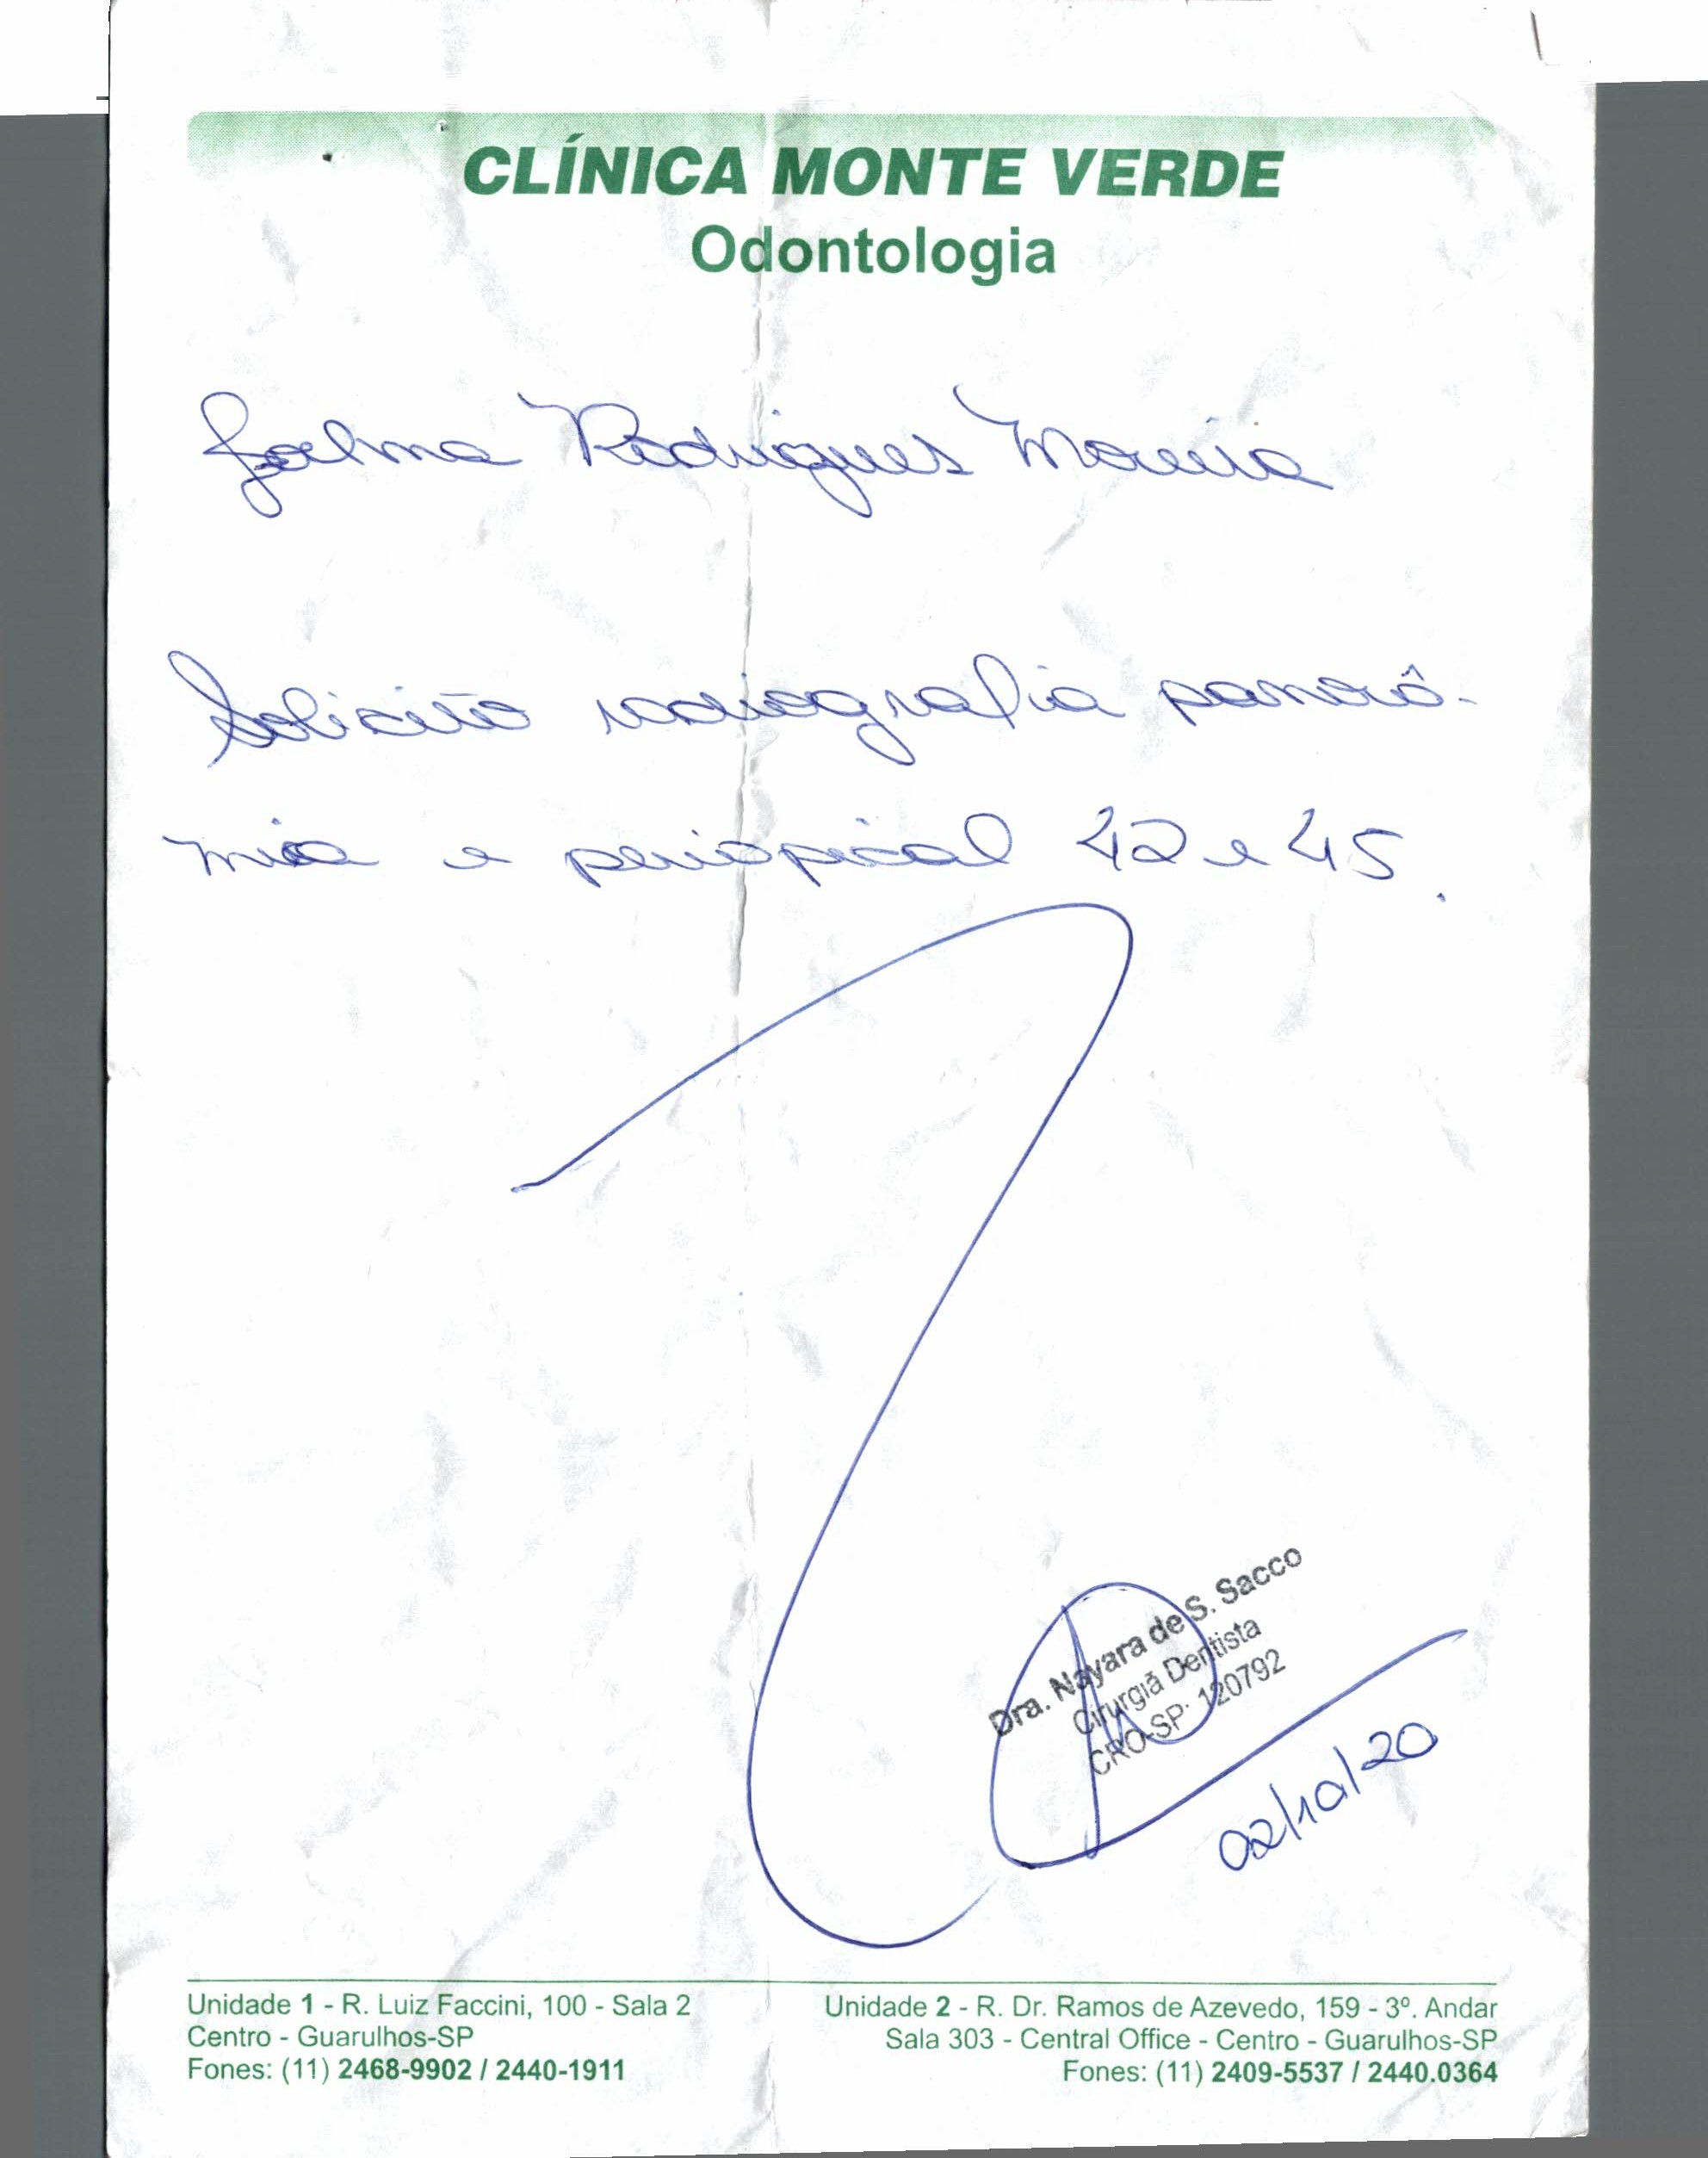 CLÍNICA MONTE VERDE
Odontologia
Rodrigues Moreira
Solicito radiografia panorâ-
mica e periapical 42 e 45.
Dra. Nayara de S. Sacco
Cirurgiã Dentista
CRO-SP: 120792
02/10/20
Unidade 1 - R. Luiz Faccini, 100 - Sala 2
Centro - Guarulhos-SP
Fones: (11) 2468-9902 / 2440-1911
Unidade 2 - R. Dr. Ramos de Azevedo, 159 - 3º. Andar
Sala 303 - Central Office - Centro - Guarulhos-SP
Fones: (11) 2409-5537 / 2440.0364